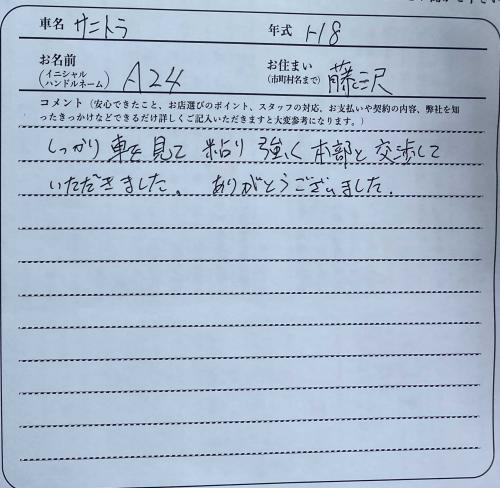 車名 サニトラ 年式 H8
お名前 (イニシャル ハンドルネーム) A24 お住まい (市町村名まで) 藤沢
コメント（安心できたこと、お店選びのポイント、スタッフの対応、お支払いや契約の内容、弊社を知
ったきっかけなどできるだけ詳しくご記入いただきますと大変参考になります。）
しっかり車を見て 粘り強く本部と交渉して
いただきました。 ありがとうございました.